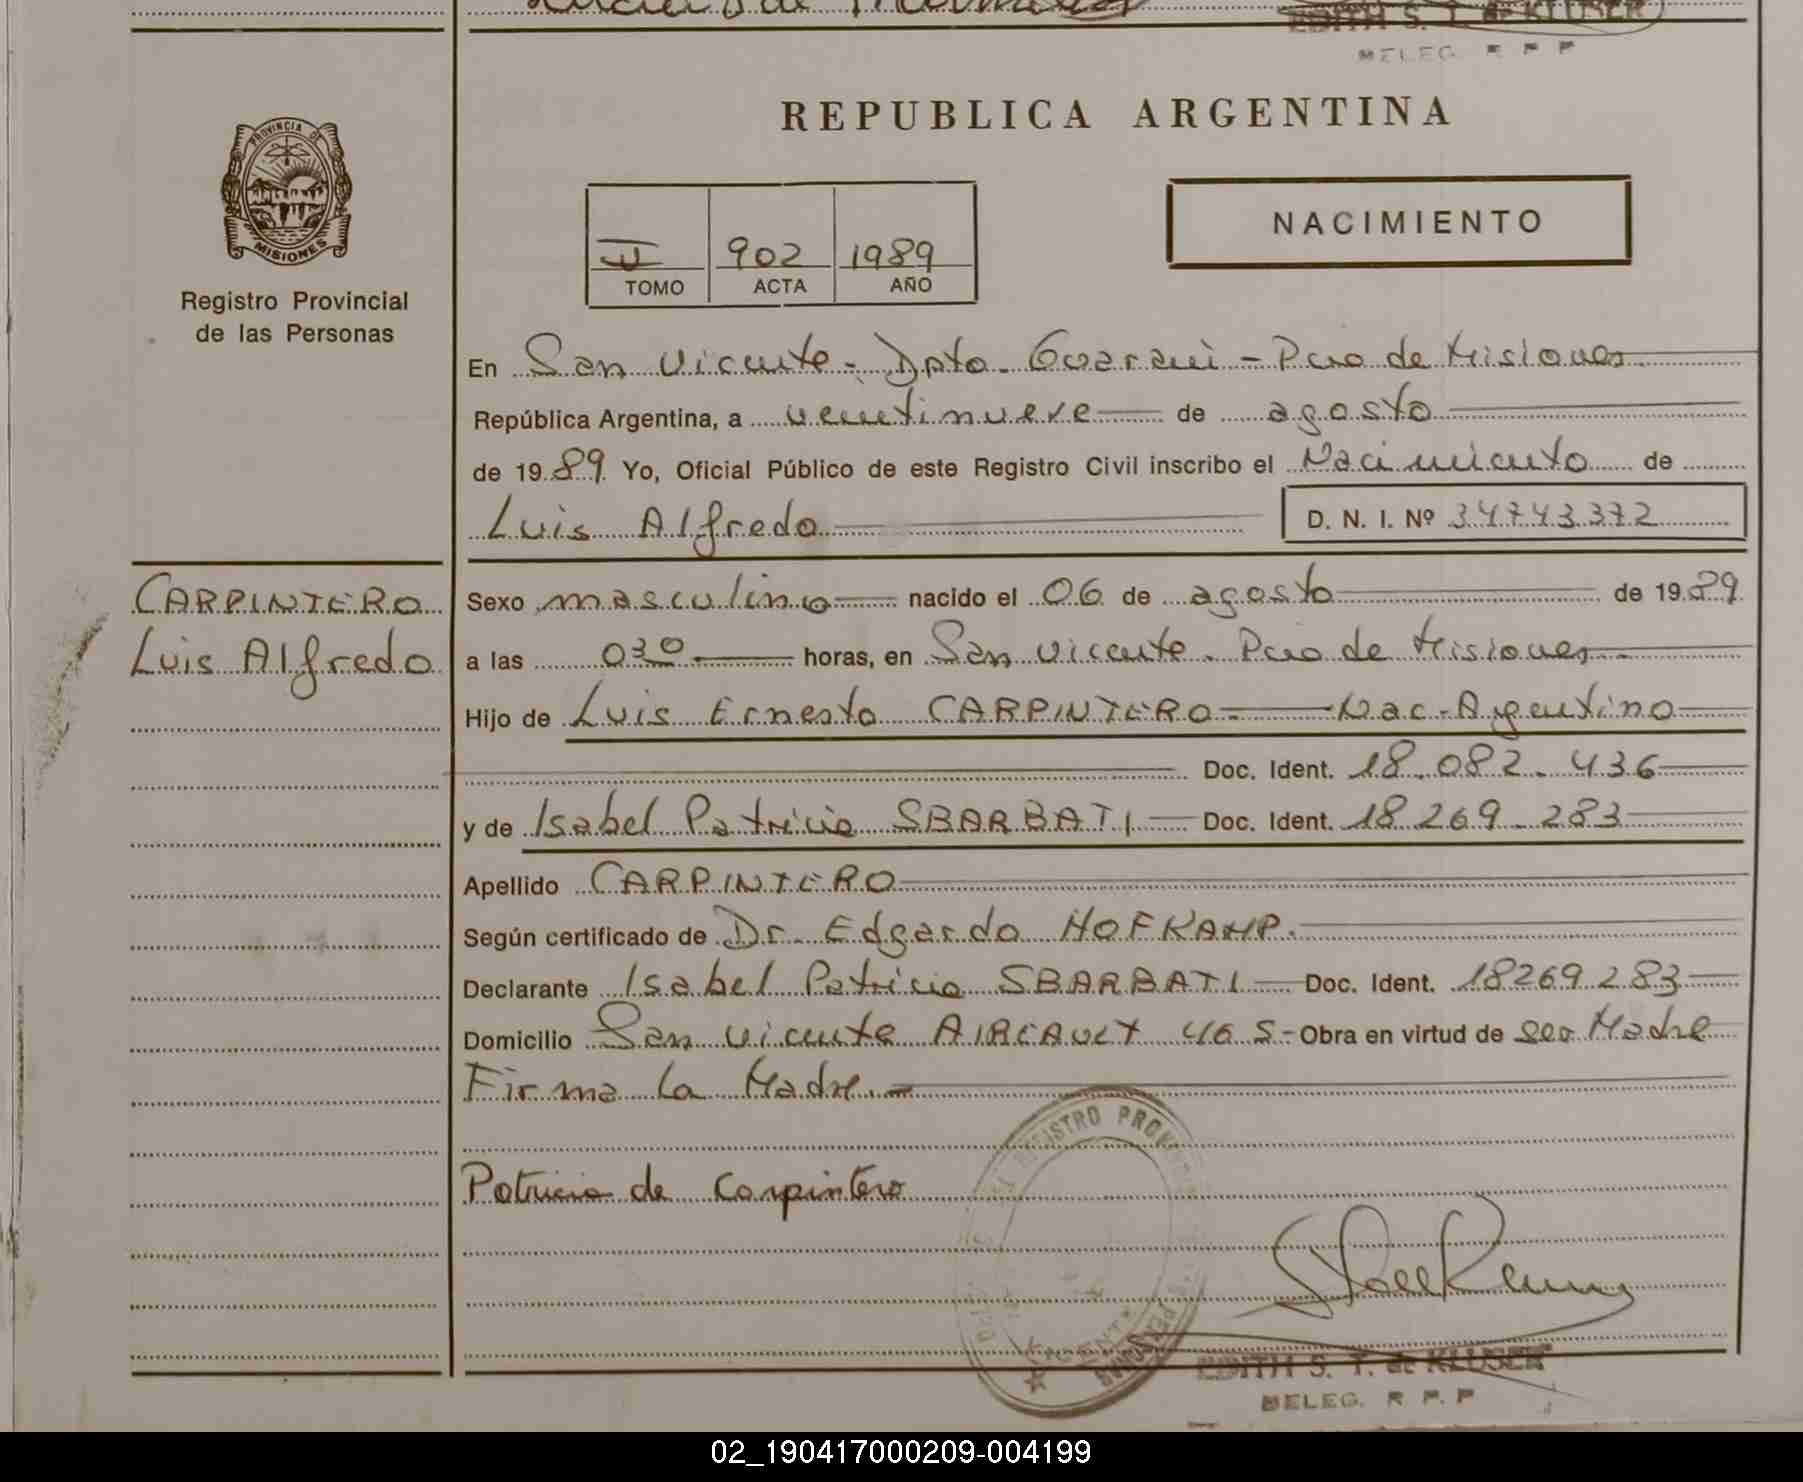 EDITH S. T. de KLUSER
DELEG. R P P
PROVINCIA DE
MISIONES
Registro Provincial
de las Personas
REPUBLICA ARGENTINA
NACIMIENTO
II 902 1989
TOMO ACTA AÑO
En San Vicente - Dpto. Guarani - Pcia de Misiones
República Argentina, a veintinueve de agosto
de 1989 Yo, Oficial Público de este Registro Civil inscribo el Nacimiento de
Luis Alfredo D. N. I. Nº 34743372
CARPINTERO
Luis Alfredo
Sexo masculino nacido el 06 de agosto de 1989
a las 030 horas, en San Vicente. Pcia de Misiones.
Hijo de Luis Ernesto CARPINTERO - Nac. Argentino
Doc. Ident. 18.082.436
y de Isabel Patricia SBARBATI Doc. Ident. 18 269.283
Apellido CARPINTERO
Según certificado de Dr. Edgardo HOFKAMP.
Declarante Isabel Patricia SBARBATI Doc. Ident. 18269283
Domicilio San Vicente 465 - Obra en virtud de ser Madre
Firma la Madre. -
Patricia de Carpintero
REGISTRO PROVINCIAL
PERSONAS
EDITH S. T. de KLUSER
DELEG. R P.P
02_190417000209-004199